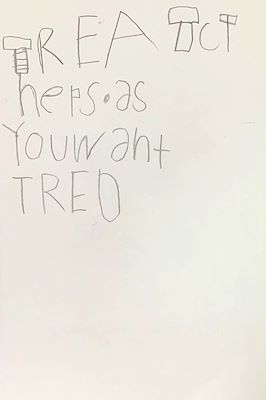 TREA TOCT
hers.as
Youwant
TRED